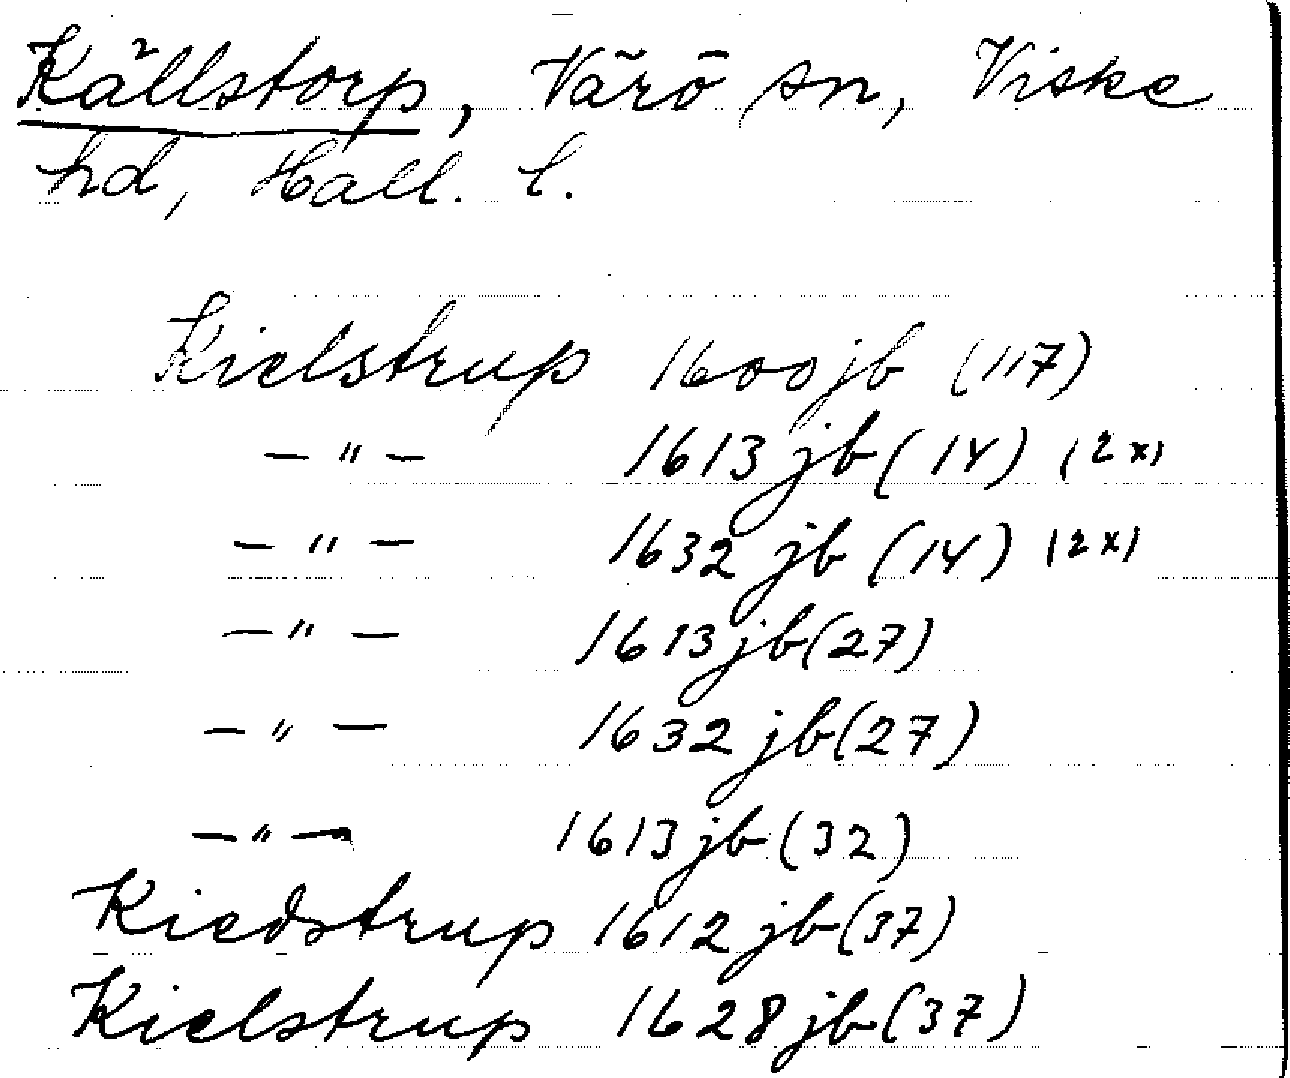 Källstorp, Värö sn, Viske
hd, Hall. l.
Kielstrup 1600 jb (117)
— " — 1613 jb (14) (2x)
— " — 1632 jb (14) (2x)
— " — 1613 jb (27)
— " — 1632 jb (27)
— " — 1613 jb (32)
Kiedstrup 1612 jb (37)
Kielstrup 1628 jb (37)